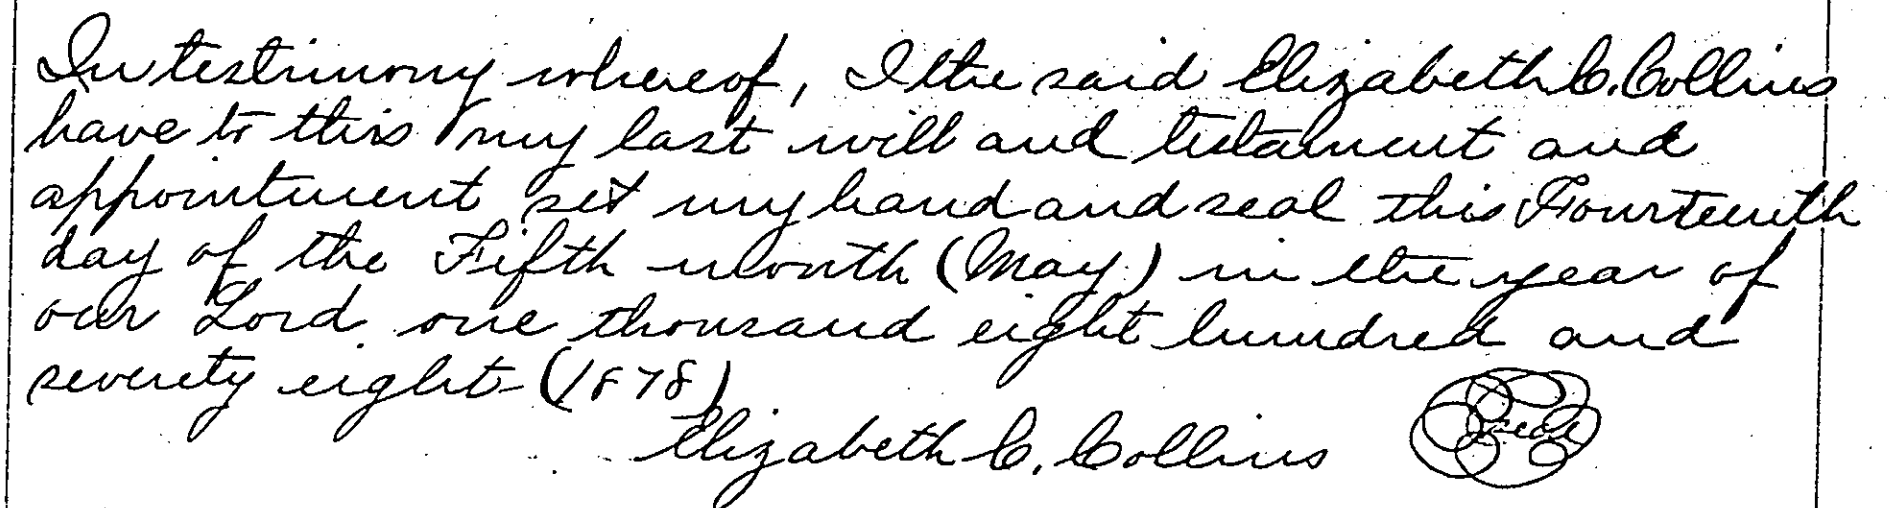 In testimony whereof, I the said Elizabeth C. Collins
have to this my last will and testament and
appointment set my hand and seal this Fourteenth
day of the Fifth month (May) in the year of
our Lord one thousand eight hundred and
seventy eight (1878)
Elizabeth C. Collins Seal